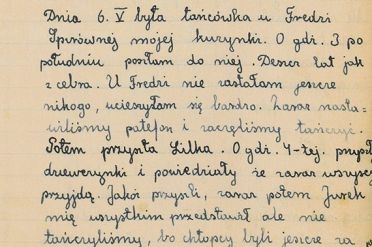 Dnia 6. V była tańcówka u Fredzi
Spirównej mojej kuzynki. O godz. 3 po
południu poszłam do niej. Deszcz lał jak
z cebra. U Fredzi nie zastałam jeszcze
nikogo, ucieszyłam się bardzo. Zaraz nasta-
wiliśmy patefon i zaczęliśmy tańczyć.
Potem przyszła Lilka. O godz. 4-tej przyszły
dziewczynki i powiedziały że zaraz wszyscy
przyjdą. Jakoż przyszli, zaraz potem Jurek
mię wszystkim przedstawił ale nie
tańczyliśmy, bo chłopcy byli jeszcze za